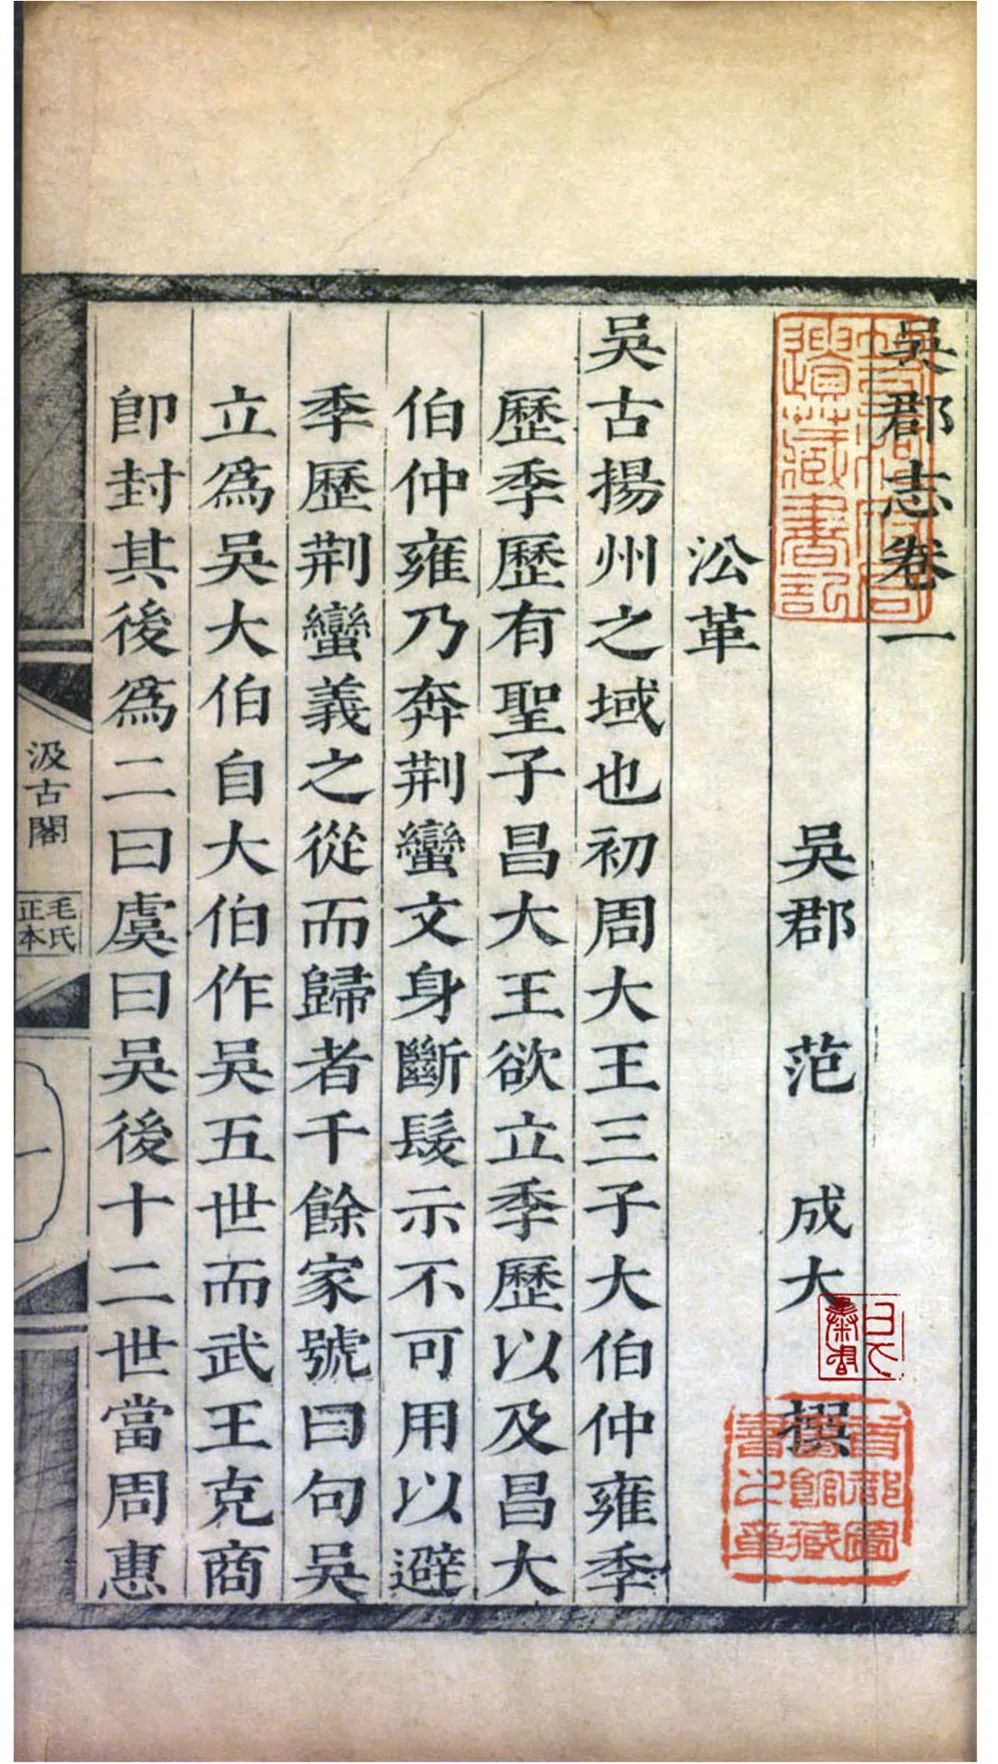 吳郡志卷一
吳郡 范 成大 撰
㳂革
吳古揚州之域也初周大王三子大伯仲雍季
歷季歷有聖子昌大王欲立季歷以及昌大
伯仲雍乃奔荆蠻文身斷髮示不可用以避
季歷荆蠻義之從而歸者千餘家號曰句吳
立爲吳大伯自大伯作吳五世而武王克商
卽封其後爲二曰虞曰吳後十二世當周惠
汲古閣
毛氏
正本
一
首都圖
書館藏
書之章
遺藏書記